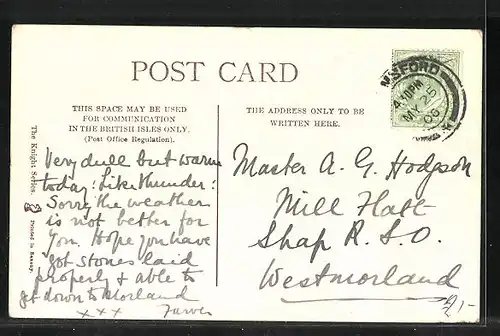 POST CARD
THIS SPACE MAY BE USED
FOR COMMUNICATION
IN THE BRITISH ISLES ONLY.
(Post Office Regulation).
THE ADDRESS ONLY TO BE
WRITTEN HERE.
The Knight Series.
Printed in Saxony.
Very dull but warm
today: Like thunder:
Sorry the weather
is not better for
you. Hope you have
got stones laid
properly & able to
get down to Morland
x x x
Master A. G. Hodgson
Mill Flatt
Shap R.S.O.
Westmorland
4.10PM
MY 25